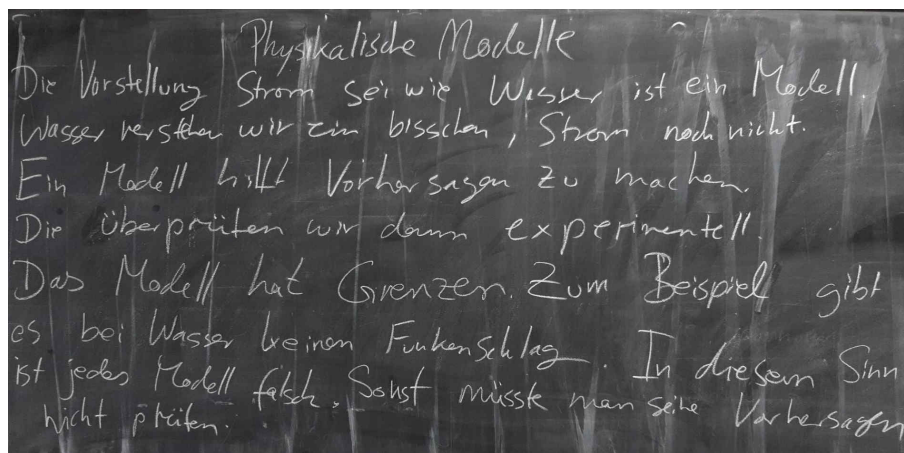 Physikalische Modelle
Die Vorstellung Strom sei wie Wasser ist ein Modell.
Wasser verstehen wir ein bisschen, Strom noch nicht.
Ein Modell hilft Vorhersagen zu machen.
Die überprüfen wir dann experimentell.
Das Modell hat Grenzen. Zum Beispiel gibt
es bei Wasser keinen Funkenschlag. In diesem Sinn
ist jedes Modell falsch. Sonst müsste man seine Vorhersagen
nicht prüfen.